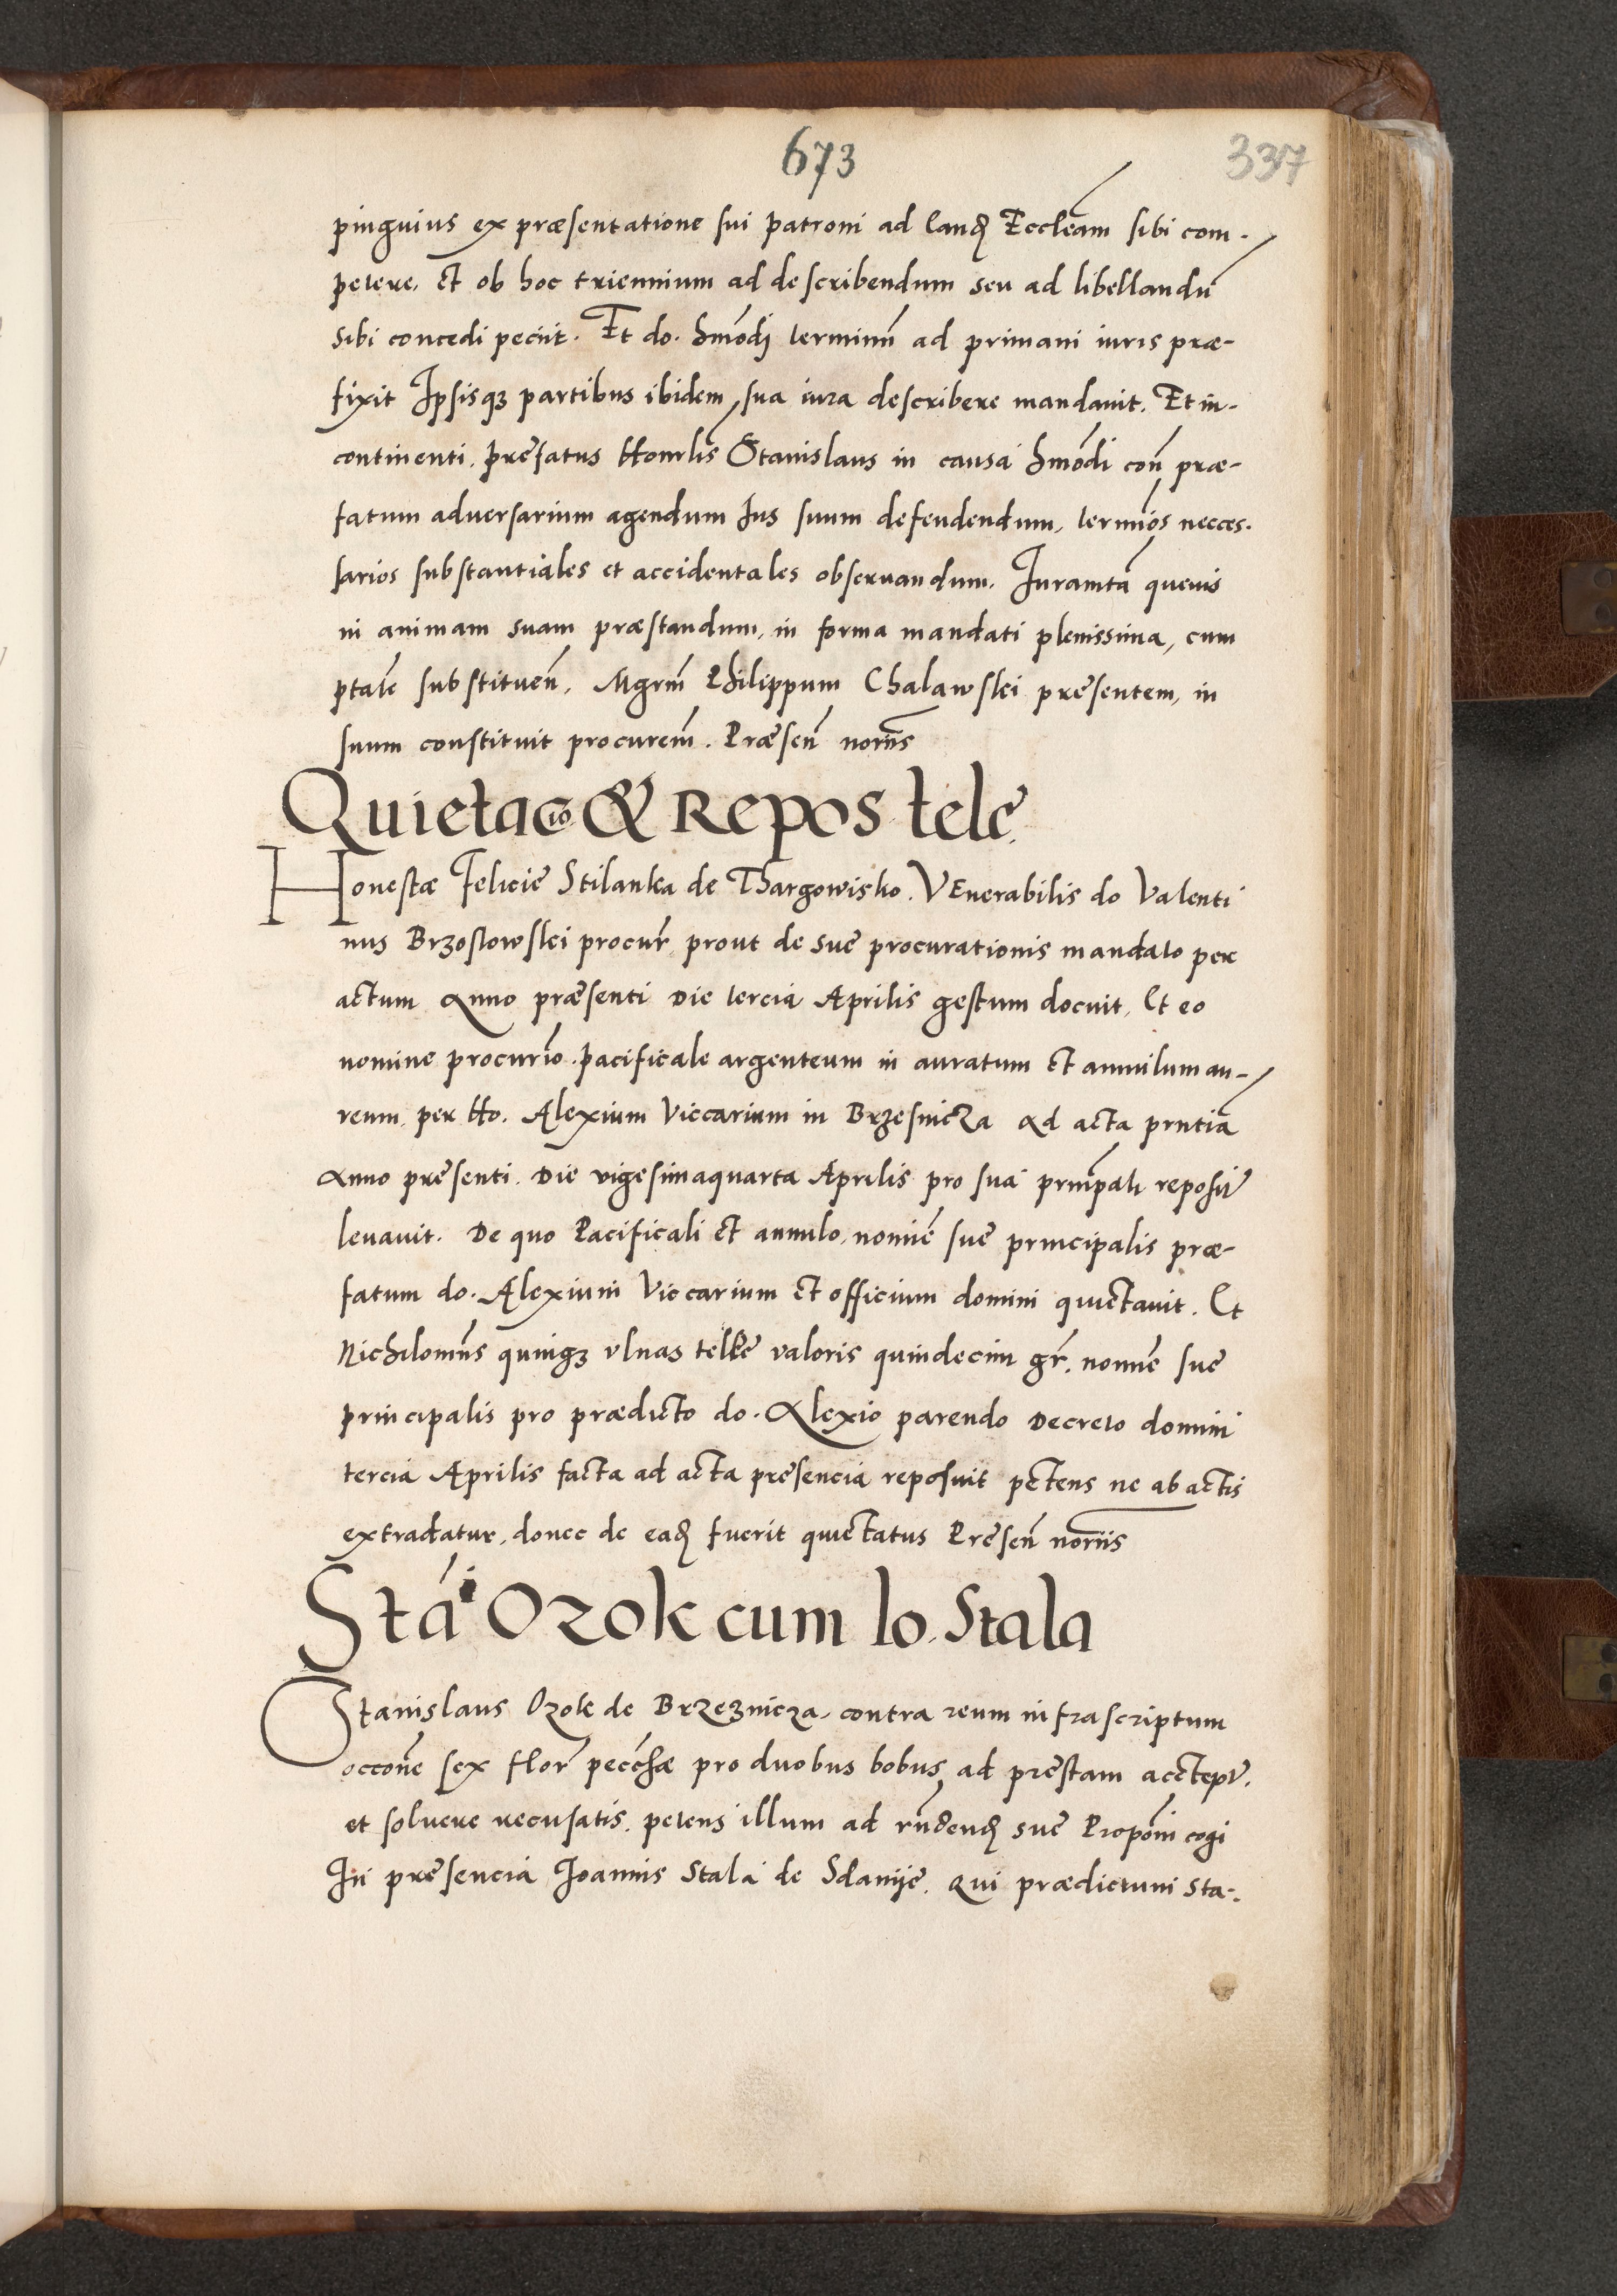 673
337
pinguius ex præsentatione sui patroni ad eand Eccleam sibi com-
petere, et ob hoc triennium ad describendum seu ad libellandū
sibi concedi peciit. Et do. hmōdj terminū ad primani iuris præ-
fixit Ipsisq3 partibus ibidem sua iura describere mandauit. Et in-
continenti, prefatus Honrlis Stanislaus in causa hmōdi con̄ præ-
fatum adversarium agendum Ius suum defendendum, termiōs necces-
sarios substantiales et accidentales obseruandum. Iuramtā quevis
in animam suam præstandum, in forma mandati plenissima, cum
ptate substituen̄, Mgrm̄ Philippum Chalawskj presentem, in
suum constituit procurem̄. Præsen̄ noriis
Quietacio & Repos tele
Honestæ Felicie Stilanka de Thargowisko. VEnerabilis do Valenti
nus Brzostowskj procur̄ prout de sue procurationis mandato per
actum Anno præsenti Die tercia Aprilis gestum docuit, Et eo
nomine procurio pacificale argenteum in auratum et annulum au-
reum, per Ho. Alexium Viccarium in BrzesnicZa Ad acta prntia
Anno presenti. Die vigesimaquarta Aprilis pro sua prnīpali reposit̄
levauit. De quo Pacificali et annulo, nomīe sue principalis præ-
fatum do. Alexium Viccarium et officium domini quietauit. Et
Nichilomn̄s quinq3 vlnas telke valoris quindecim gr̄. nomīe sue
principalis pro prædicto do. Alexio parendo Decreto domini
tercia Aprilis facta ad acta presencia reposuit petens ne ab actis
extradatur, donec de ead fuerit quietatus Presen̄ noriis
Stai Ozok cum Io. Stala
Stanislaus Ozok de Brzeznicza, contra reum infrascriptum
occoñe sex flor̄ pecchæ pro duobus bobus ad prestam accept̄.
et soluere recusatis, petens illum ad rn̄dend sue Propōni cogi
In presencia Joannis Stala de Sdanije. Qui prædictum Sta-